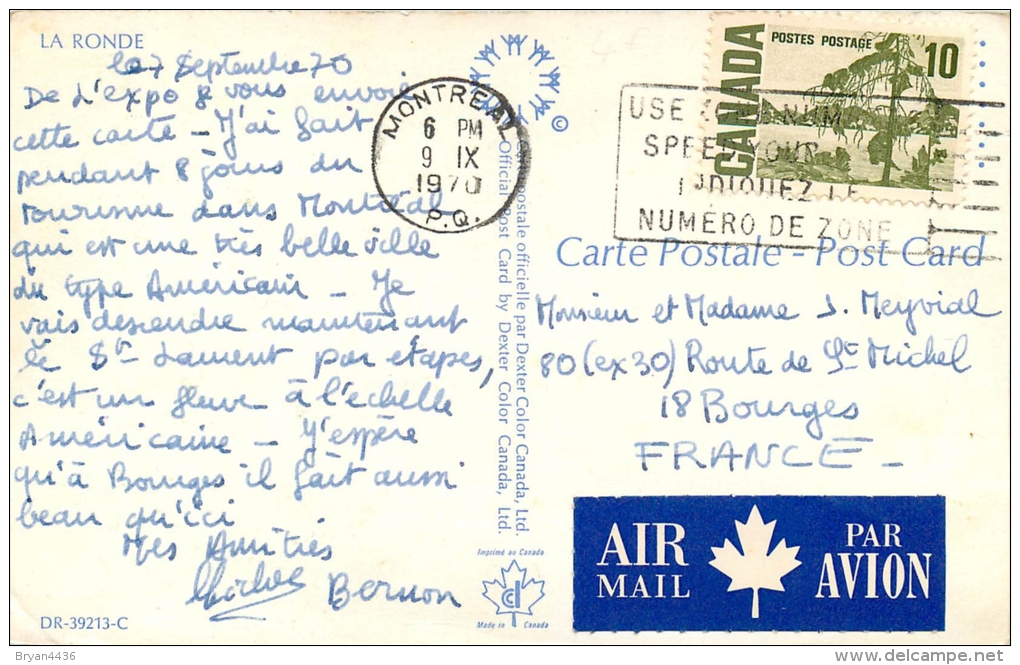 LA RONDE
le 7 Septembre 70
De l'expo je vous envoie
cette carte - J'ai fait
pendant 8 jours du
tourisme dans Montréal
qui est une très belle ville
du type Américain - Je
vais descendre maintenant
le St Laurent par étapes,
c'est un fleuve à l'echelle
Américaine - J'espère
qu'à Bourges il fait aussi
beau qu'ici
Mes Amitiés
Bernon
DR-39213-C
MONTREAL
6 PM
9 IX
1970
P.Q.
©
Carte postale officielle par Dexter Color Canada, Ltd.
Official Post Card by Dexter Color Canada, Ltd.
Imprimé au Canada
Made in Canada
CANADA
POSTES POSTAGE
10
USE
SPEED YOUR
INDIQUEZ LE
NUMÉRO DE ZONE
Carte Postale - Post Card
Monsieur et Madame J. Meyvial
80 (ex 30) Route de St Michel
18 Bourges
FRANCE -
AIR MAIL
PAR AVION
Bryan4436
www.delcampe.net